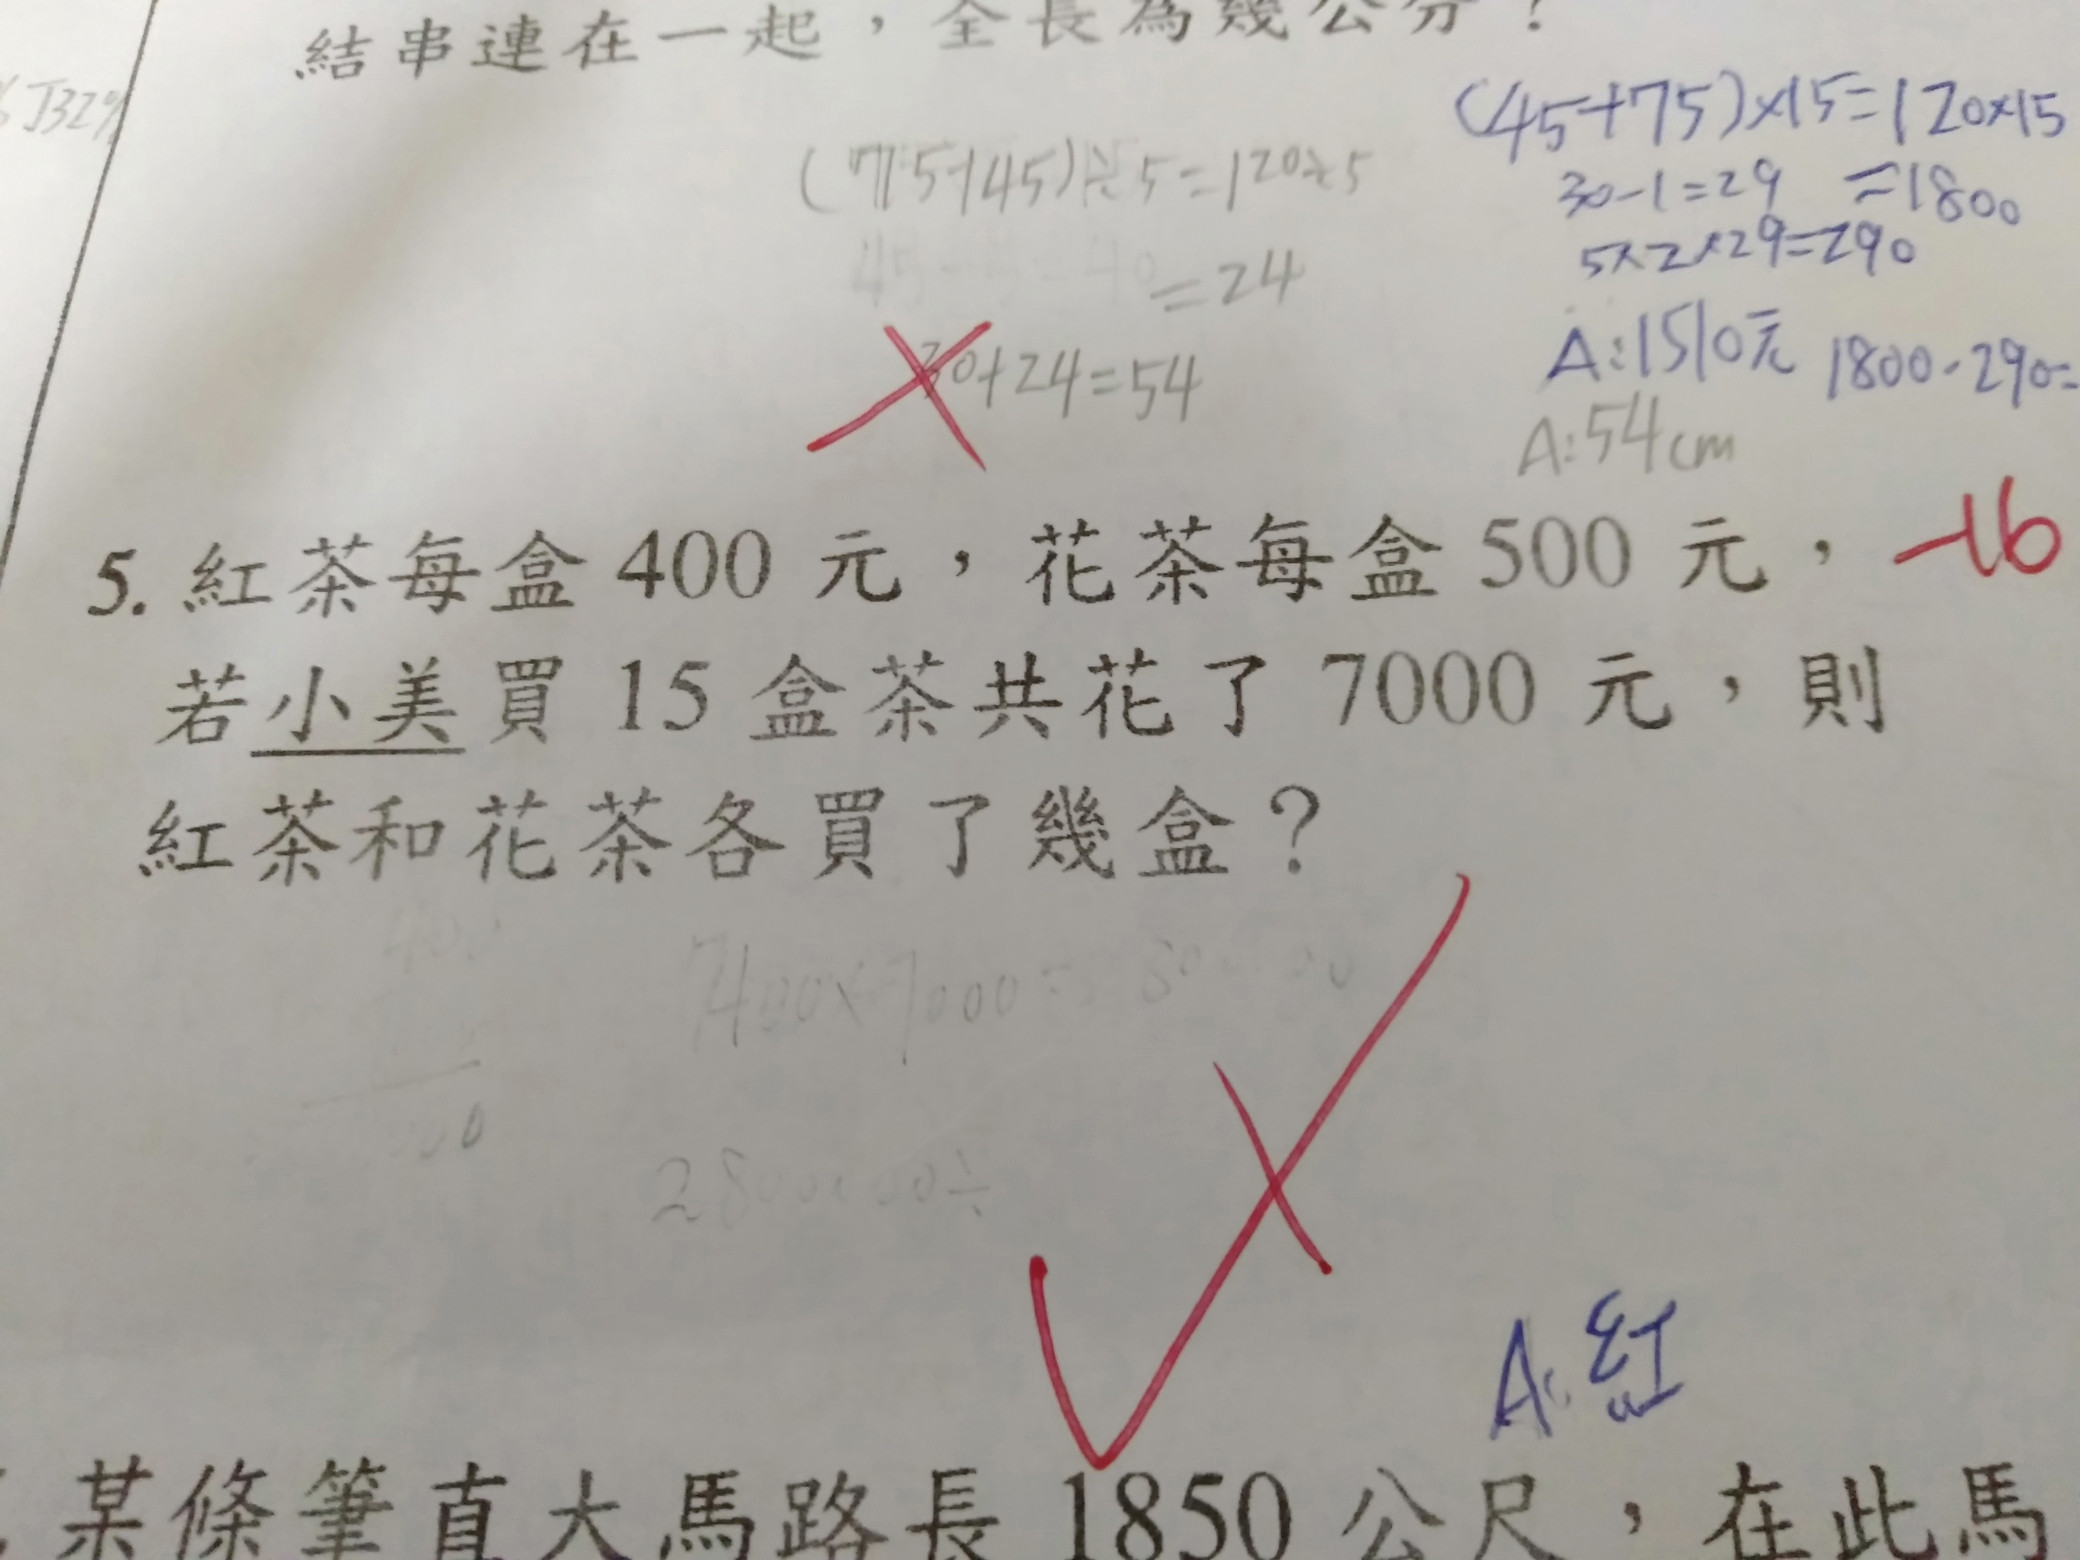 結串連在一起，全長為幾公分？
J32%
(75+45)÷5=120÷5
=24
30+24=54
(45+75)×15=120×15
30-1=29 =1800
5×2×29=290
A:1510元 1800-290=
A:54cm
5. 紅茶每盒 400 元，花茶每盒 500 元，
-16
若小美買 15 盒茶共花了 7000 元，則
紅茶和花茶各買了幾盒？
400×7000=
A:紅
某條筆直大馬路長 1850 公尺，在此馬